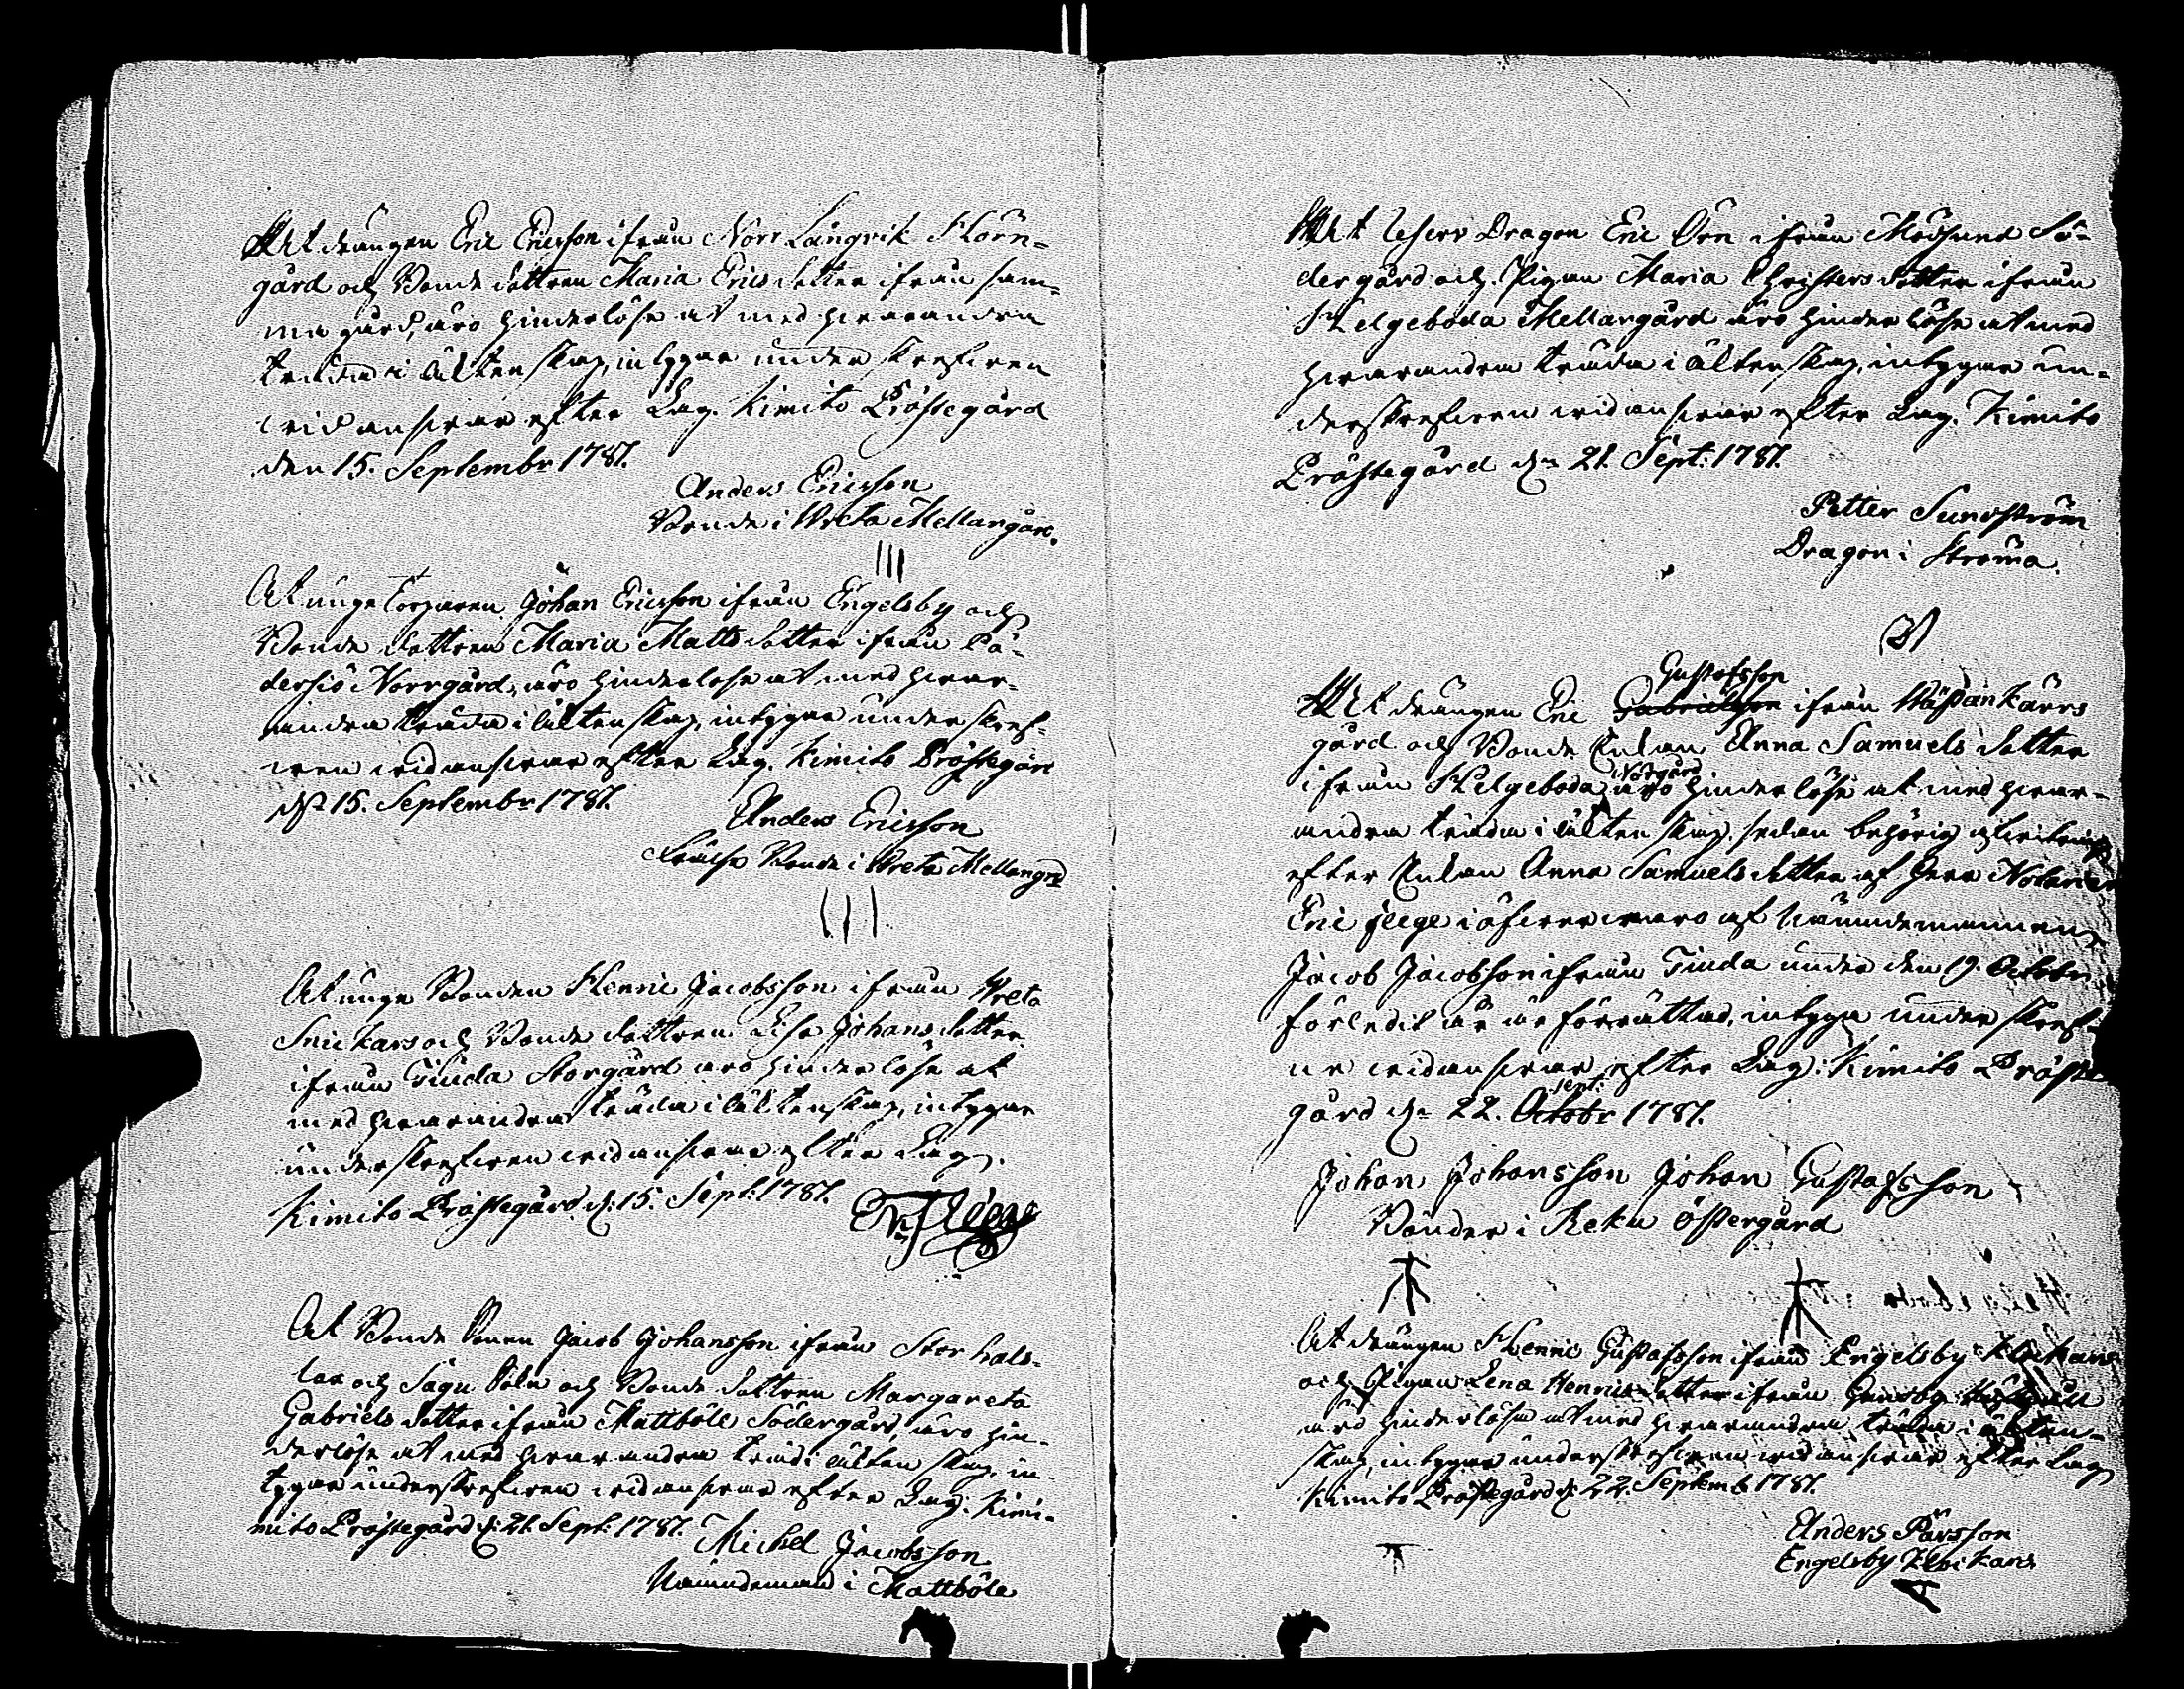 At drängen Eric Ericsson ifrån Norr Långvik Hörn-
gård och Bonde dottren Maria Erics dotter ifrån sam-
ma gård, äro hinderlöse at med hvarandra
träda i äktenskap, intygar under skrefven
vid ansvar efter Lag. Kimito Prästegård
den 15. Septembr 1787.
Anders Ericsson
Bonde i Wreta Mellangård.
At unge Torparen Johan Ericsson ifrån Engelsby och
Bonde dottren Maria Matts dotter ifrån Pä-
dersiö Norrgård, äro hinderlöse at med hvar-
andra träda i äktenskap, intygar under skref-
ven vid ansvar efter Lag. Kimito Prästegård
dn 15. Septembr 1787.
Anders Ericsson
Frälse Bonde i Wreta Mellangrd
At unge Bonden Henric Jacobsson ifrån Wreta
Snickars och Bonde dottren Lisa Johans dotter
ifrån Tiuda Storgård äro hinderlöse at
med hvarandra träda i äktenskap, intygar
underskrefven vid ansvar efter Lag.
Kimito Prästegård d: 15. Sept: 1787.
At Bonde Sonen Jacob Johansson ifrån
och Sagu Sokn och Bonde dottren Margareta
Gabriels dotter ifrån Mattböle Södergård, äro hin-
derlöse at med hvarandra träda i äktenskap, in-
tygar underskrefven vid ansvar efter Lag: Kimi-
mito Prästegård d: 21. Sept: 1787.
Michel Jacobsson
Nämndeman i Mattböle
At Reserv Dragon Eric Örn ifrån Modsund Sö-
dergård och Pigan Maria Christers dotter ifrån
Helgeboda Mellangård äro hinderlöse at med
hvarandra träda i äktenskap, intygar un-
derskrefven vid ansvar efter Lag. Kimito
Prästegård dn 21. Sept: 1787.
Petter Sundström
Dragon i Ströma.
Gustafsson
At drängen Eric Gabrielsson ifrån Wästankärrs
gård och Bonde Enkan Anna Samuels dotter
Norgård
ifrån Helgeboda äro hinderlöse at med hvar-
andra träda i äktenskap, sedan behörig afvitring
efter Enkan Anna Samuels dotter af Herr Notarien
Eric i öfvervaro af Nämndemannen
Jacob Jacobsson ifrån Tiuda under den 19. Octobr
förledit år är förrättad, intyga under skref-
ne vid ansvar efter Lag: Kimito Präste
sept:
gård dn 22. Octobr 1787.
Johan Johansson Johan Gustafsson
Bönder i Reku Östergård
At drängen Henric Gustafsson ifrån Engelsby Klockars
och Pigan Lena Henrics dotter ifrån
äro hinderlöse at med hvarandra träda i äkten-
skap, intygar underskrefven vid ansvar efter Lag
Kimito Prästegård d: 22. Septemb 1787.
Anders Pärsson
Engelsby Klockars